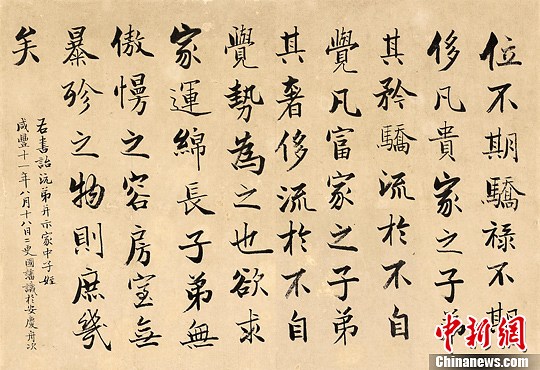 位不期驕禄不期
侈凡貴家之子弟
其矜驕流於不自
覺凡富家之子弟
其奢侈流於不自
覺勢為之也欲求
家運綿長子弟無
傲慢之容房室無
暴殄之物則庶幾
矣
右書詒沅弟并示家中子姪
咸豐十一年八月十八日二更國藩識於安慶舟次
中新網
Chinanews.com